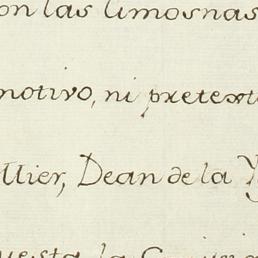 on las limosnas
motivo, ni pretexto
Mier, Dean de la Y
uesta la Comuni